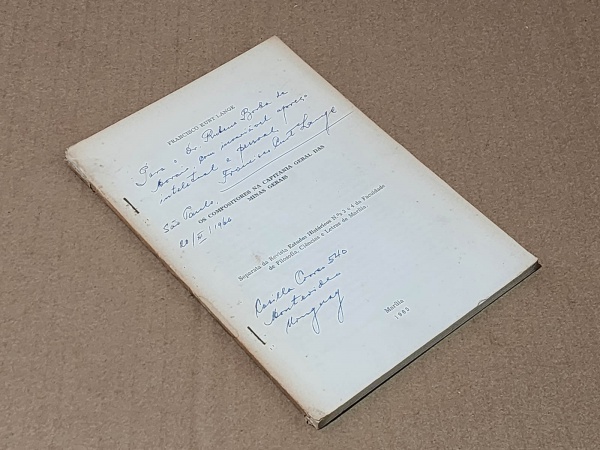 FRANCISCO KURT LANGE
Para o Dr. Rubens Borba de
Moraes com invariável apreço
intelectual e pessoal.
Francisco Curt Lange
São Paulo,
OS COMPOSITORES NA CAPITANIA GERAL DAS
MINAS GERAIS
20/XI/1966
Separata da Revista Estudos Históricos N.ºs 3 e 4 da Faculdade
de Filosofia, Ciências e Letras de Marília.
Casilla Correo 540
Montevideo
Uruguay
Marília
1965